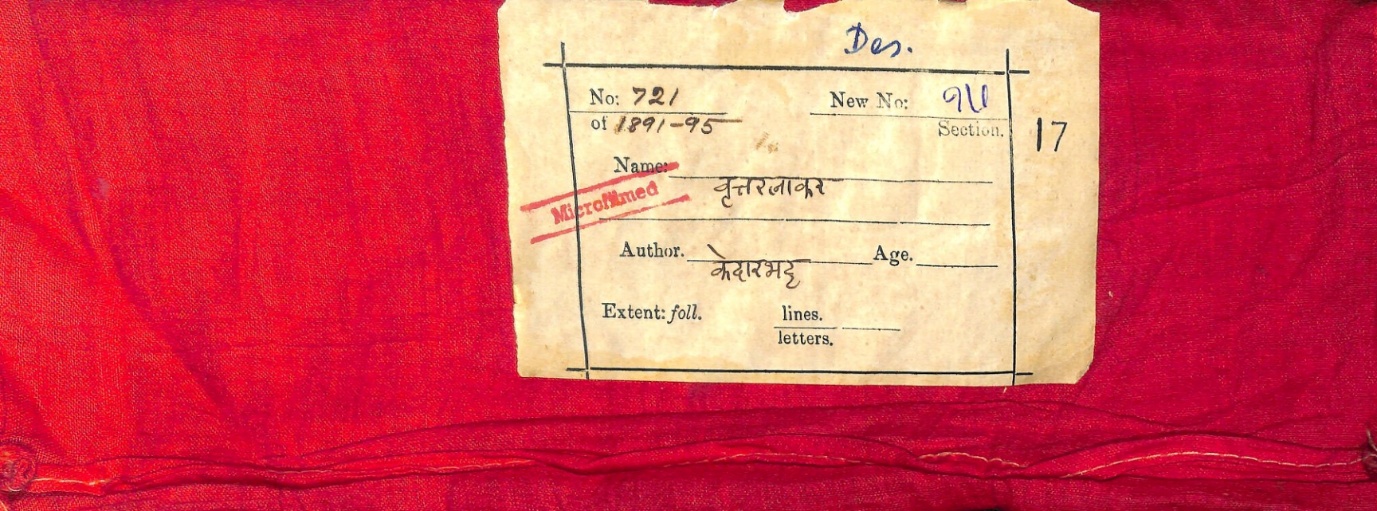 Des.
No: 721 New No: १५
of 1891-95 Section. 17
Name: वृत्तरत्नाकर
Microfilmed
Author. केदारभट्ट Age.
Extent: foll. lines.
letters.